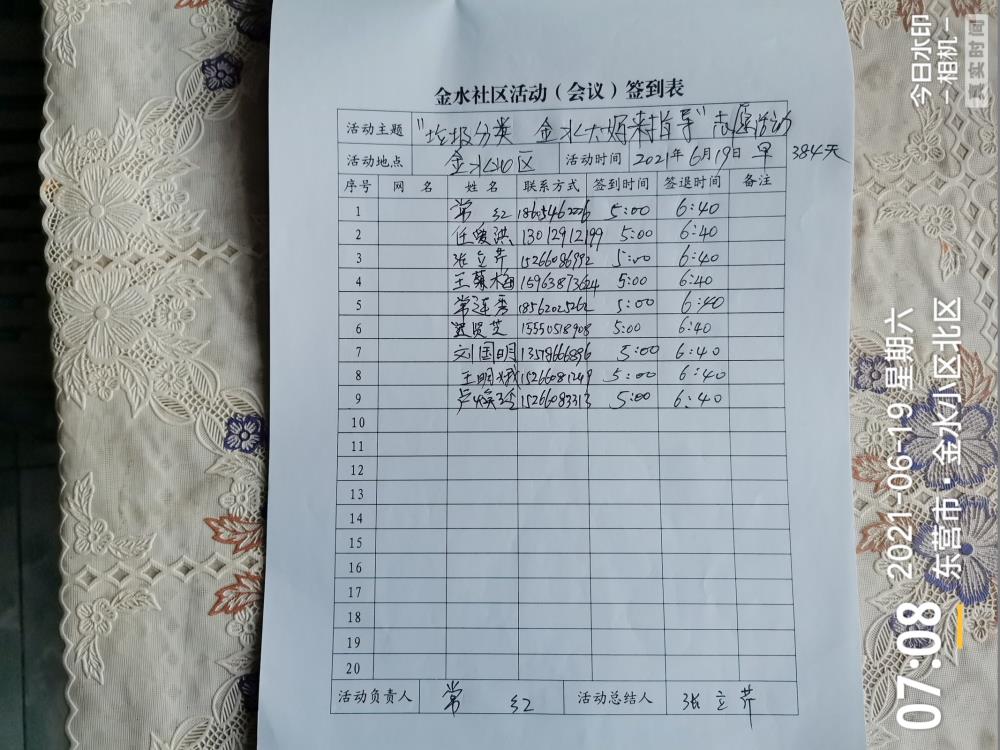 金水社区活动(会议)签到表
活动主题 "垃圾分类 金水大妈来指导"志愿活动
活动地点 金水小区 活动时间 2021年6月19日 早 384天
序号 网 名 姓 名 联系方式 签到时间 签退时间 备注
1 常 红 18615462226 5:00 6:40
2 任爱洪 13012912199 5:00 6:40
3 张立芹 15266086992 5:00 6:40
4 王菊梅 15963873624 5:00 6:40
5 常连秀 18562025262 5:00 6:40
6 贤芝 15550518908 5:00 6:40
7 刘国明 13518666896 5:00 6:40
8 王明 15266081249 5:00 6:40
9 卢焕 15266083313 5:00 6:40
10
11
12
13
14
15
16
17
18
19
20
活动负责人 常 红 活动总结人 张立芹
今日水印
-相机-
真实时间
07:08
2021-06-19 星期六
东营市·金水小区北区